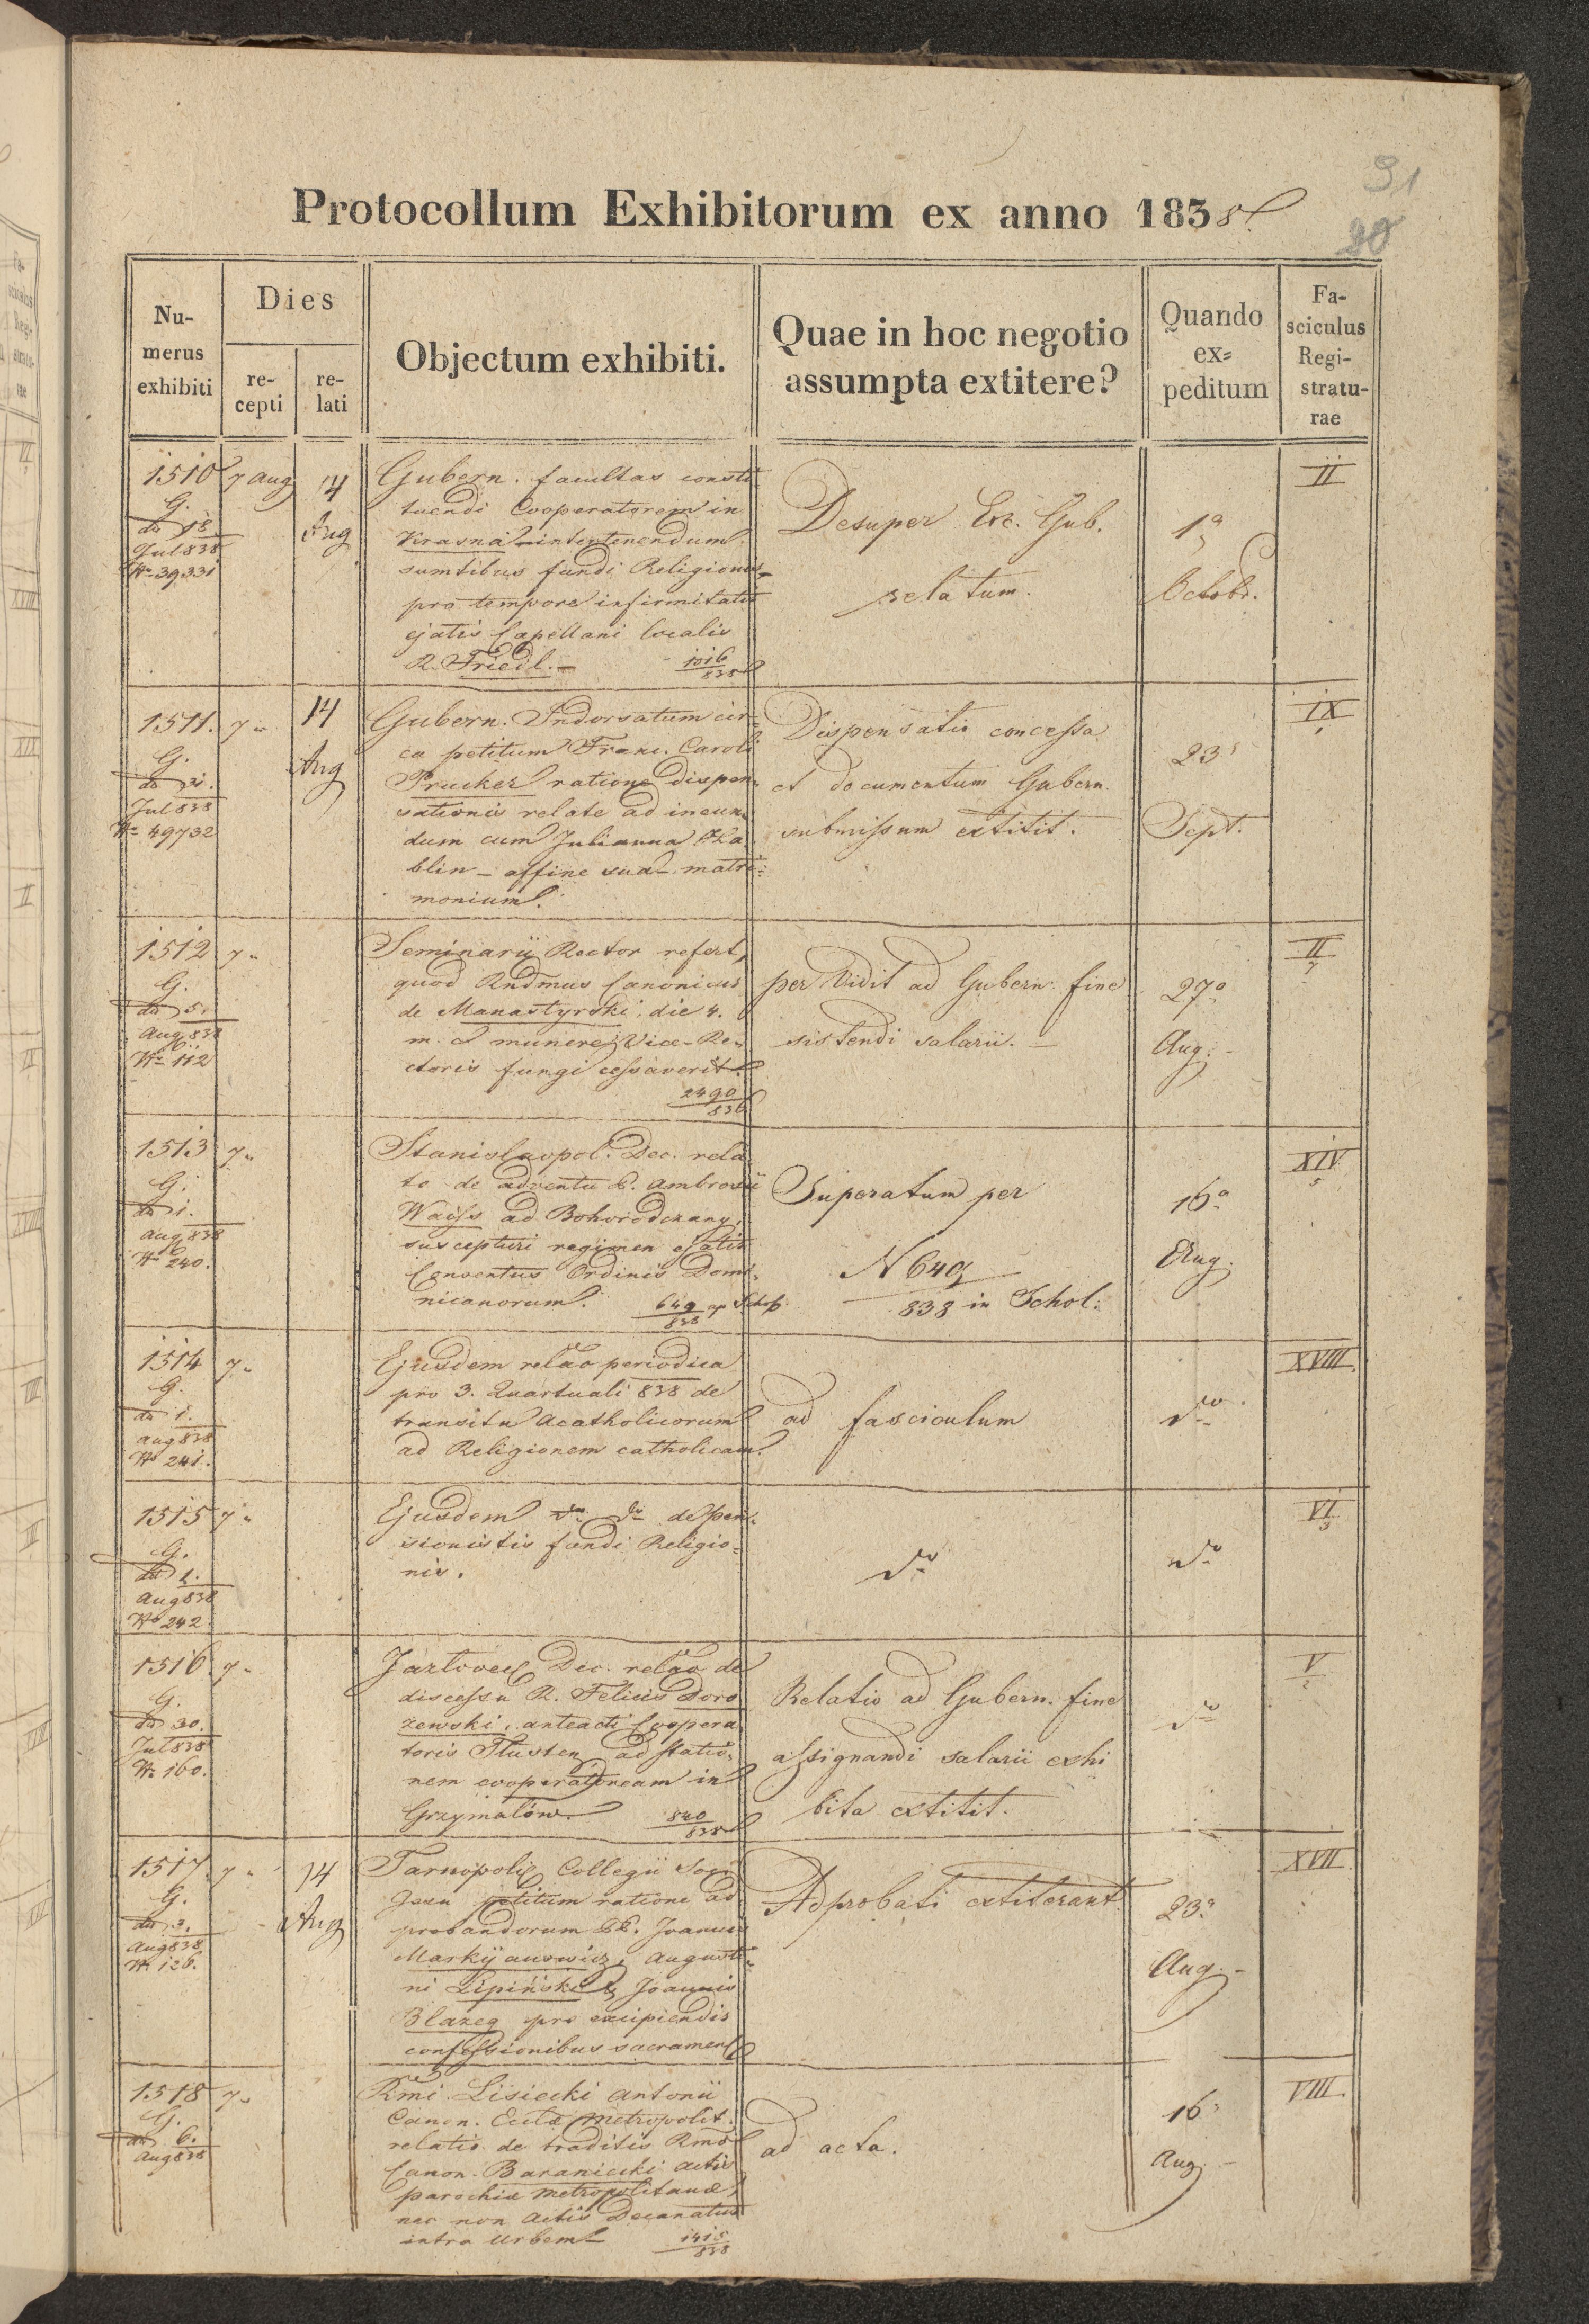 31
30
Protocollum Exhibitorum ex anno 1838
Nu-
merus
exhibiti
Dies
re-
cepti
re-
lati
Objectum exhibiti.
Quae in hoc negotio
assumpta extitere?
Quando
ex=
peditum
Fa-
sciculus
Regi-
stratu-
rae
1510
G.
dto 18
Jul 838
No 39331
7 Aug
14
Aug
Gubern. facultas consti
tuendi Cooperatorem in
Krasna intertenendum
sumtibus fundi Religionis
pro tempore infirmitatis
ejatis Capellani localis
R. Friedl. –
1016
838
Desuper Exc. Gub.
relatum.
1a
Octobr.
II
1511.
G.
dto 31.
Jul 838
No 49732
7 "
14
Aug
Gubern. Indorsatum cir=
ca petitum Franc. Caroli
Prucker ratione dispen=
sationis relate ad ineun
dum cum Julianna
blin – affine sua – matri=
monium.
Dispensatio concessa
et documentum Gubern.
submissum extitit.
23a
Sept.
IX
1512
G.
dto 5.
Aug 838
No 112
7 "
Seminarii Rector refert,
quod Rndmus Canonicus
de Manastyrski, die 4.
m. c. munere Vice-Re=
ctoris fungi cessaverit.
2490
836
per Vidit ad Gubern. fine
sistendi salarii. –
27a
Aug. –
II
7
1513
G.
dto 1.
Aug 838
No 240.
7 "
Stanislaopol. Dec. rela
to de adventu P. Ambrosii
Waiss ad Bohorodczany,
suscepturi regimen ejatis
Conventus Ordinis Domi=
nicanorum.
649
838
Superatum per
N 649
838 in Schol.
16a
Aug.
XIV
5
1514
G.
dto 1.
Aug 838
No 241.
7 "
Ejusdem relao periodica
pro 3. Quartuali 838 de
transitu Acatholicorum
ad Religionem catholicam.
ad fasciculum
dto
XVIII.
1515
G.
dto 1.
Aug 838
No 242.
7 "
Ejusdem dto dto de pen=
sionistis fundi Religio=
nis.
dto
dto
VI
3
1516
G.
dto 30.
Jul 838
No 160.
7 "
Jazlovec Dec. relao de
discessu R. Felicis Doro
zewski, anteacti Coopera
toris Tlusten. ad statio=
nem cooperatoream in
Grzymałów.
840
838
Relatio ad Gubern. fine
assignandi salarii exhi
bita extitit.
dto
V
2
1517.
G.
dto 3.
Aug 838
No 126.
7 "
14
Aug
Tarnopoli Collegii Soci
Jesu petitum ratione ad
probandorum PP. Joannis
Markijanowicz, Augusti=
ni Lipiński & Joannis
Blazeg pro excipiendis
confessionibus sacramen
Adprobati extiterant.
23a
Aug. –
XVII
1518
G.
dto 6.
Aug 838
7 "
Rmi Lisiecki Antonii
Canon. Eccla Metropolit.
relatio de traditis Rmo
Canon. Baraniecki actis
parochiae Metropolitanae,
nec non actis Decanatus
intra Urbem
1415
838
ad acta.
16a
Aug. –
VIII.